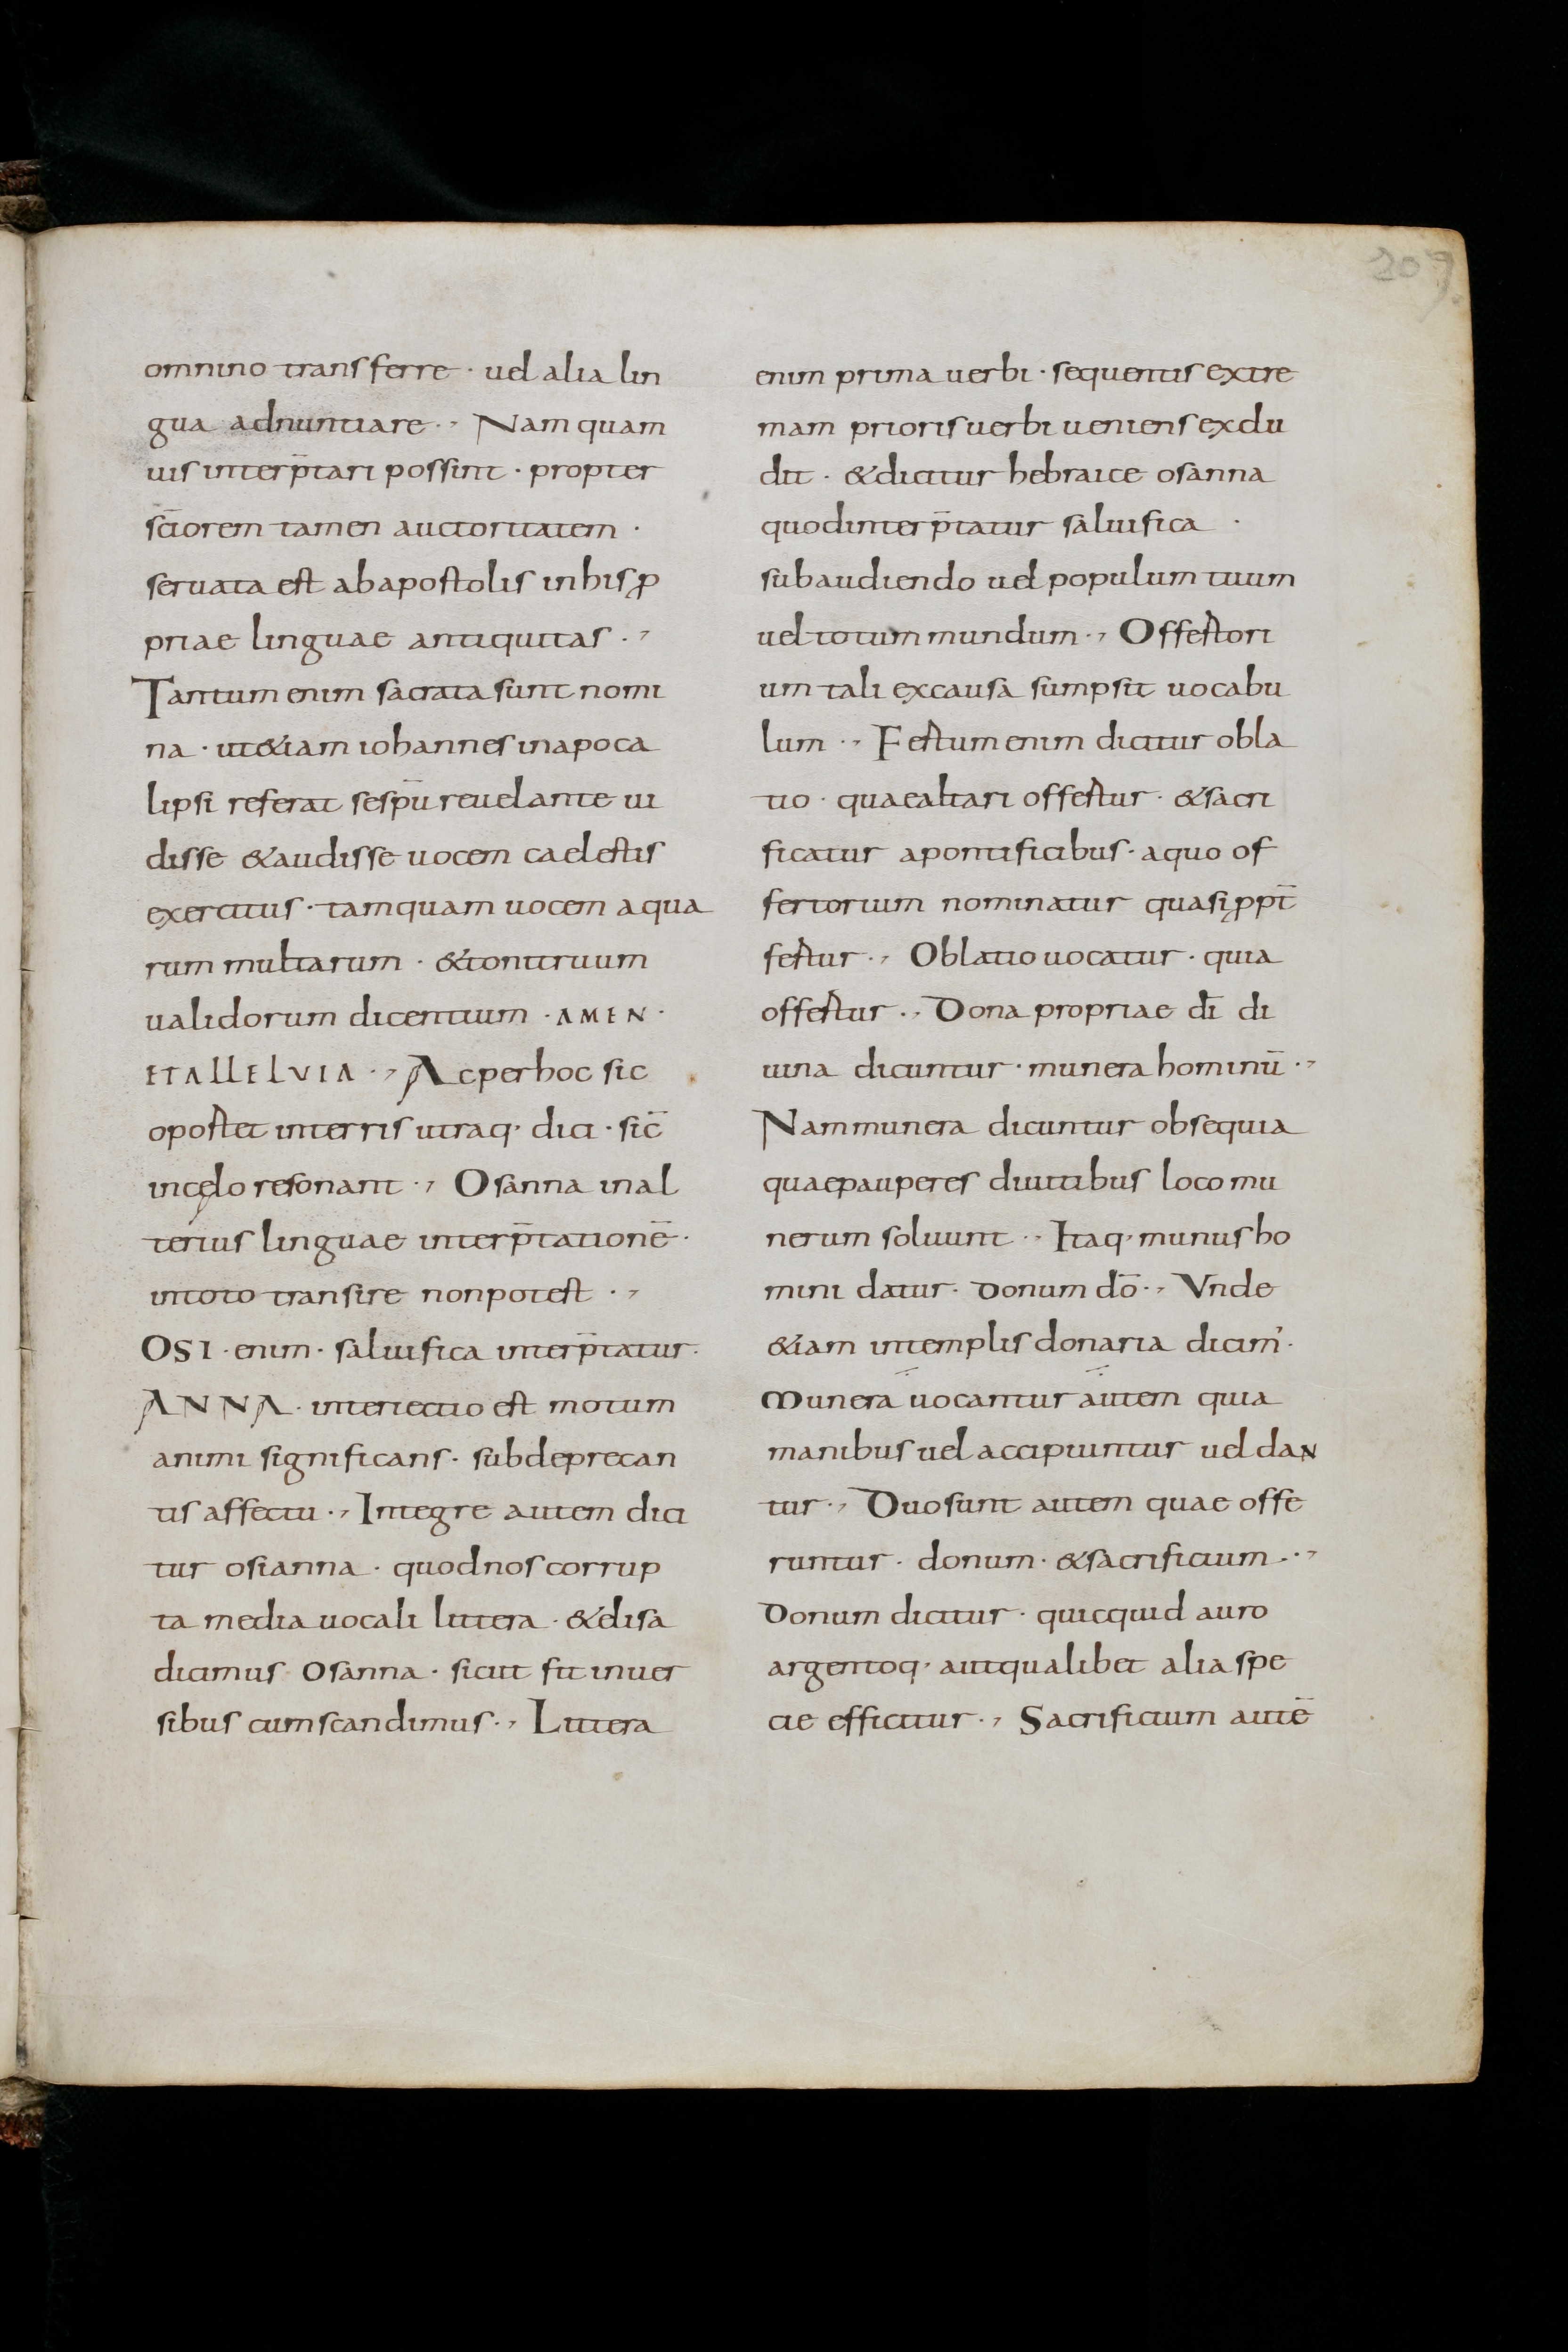 209
omnino transferre · uel alia lin
gua adnuntiare ·, Nam quam
uis interp̄tari possint · propter
sc̄iorem tamen auctoritatem ·
seruata est ab apostolis in his ꝓ
priae linguae antiquitas ·,
Tantum enim sacrata sunt nomi
na · ut &iam iohannes in apoca
lipsi referat se sp̄u reuelante ui
disse & audisse uocem caelestis
exercitus · tamquam uocem aqua
rum multarum · & tonitruum
ualidorum dicentium · AMEN ·
ET ALLELVIA ·, Ac per hoc sic
oportet in terris utraq· dici · sic̄
in cęlo resonant ·, Osanna in al
terius linguae interp̄tationē ·
in toto transire non potest ·,
OSI · enim · saluifica interp̄tatur ·
ANNA · interiectio est motum
animi significans · sub deprecan
tis affectu ·, Integre autem dici
tur osianna · quod nos corrup
ta media uocali littera · & elisa
dicimus osanna · sicut fit in uer
sibus cum scandimus ·, Littera
enim prima uerbi · sequentis extre
mam prioris uerbi ueniens exclu
dit · & dicitur hebraice osanna
quod interp̄tatur saluifica ·
subaudiendo uel populum tuum
uel totum mundum ·, Offertori
um tali ex causa sumpsit uocabu
lum ·, Fertum enim dicitur obla
tio · quae altari offertur · & sacri
ficatur a pontificibus · a quo of
fertorium nominatur quasi ꝓpt̄
fertur ·, Oblatio uocatur · quia
offertur ·, Dona propriae dī di
uina dicuntur · munera hominū ·,
Nam munera dicuntur obsequia
quae pauperes diuitibus loco mu
nerum soluunt ·, Itaq· munus ho
mini datur · donum dō ·, Vnde
&iam in templis donaria dicim' ·
Munera uocantur autem quia
manibus uel accipiuntur uel daN
tur ·, Duo sunt autem quae offe
runtur · donum · & sacrificium ·,
Donum dicitur · quicquid auro
argentoq· aut qualibet alia spe
cie efficitur ·, Sacrificium autē